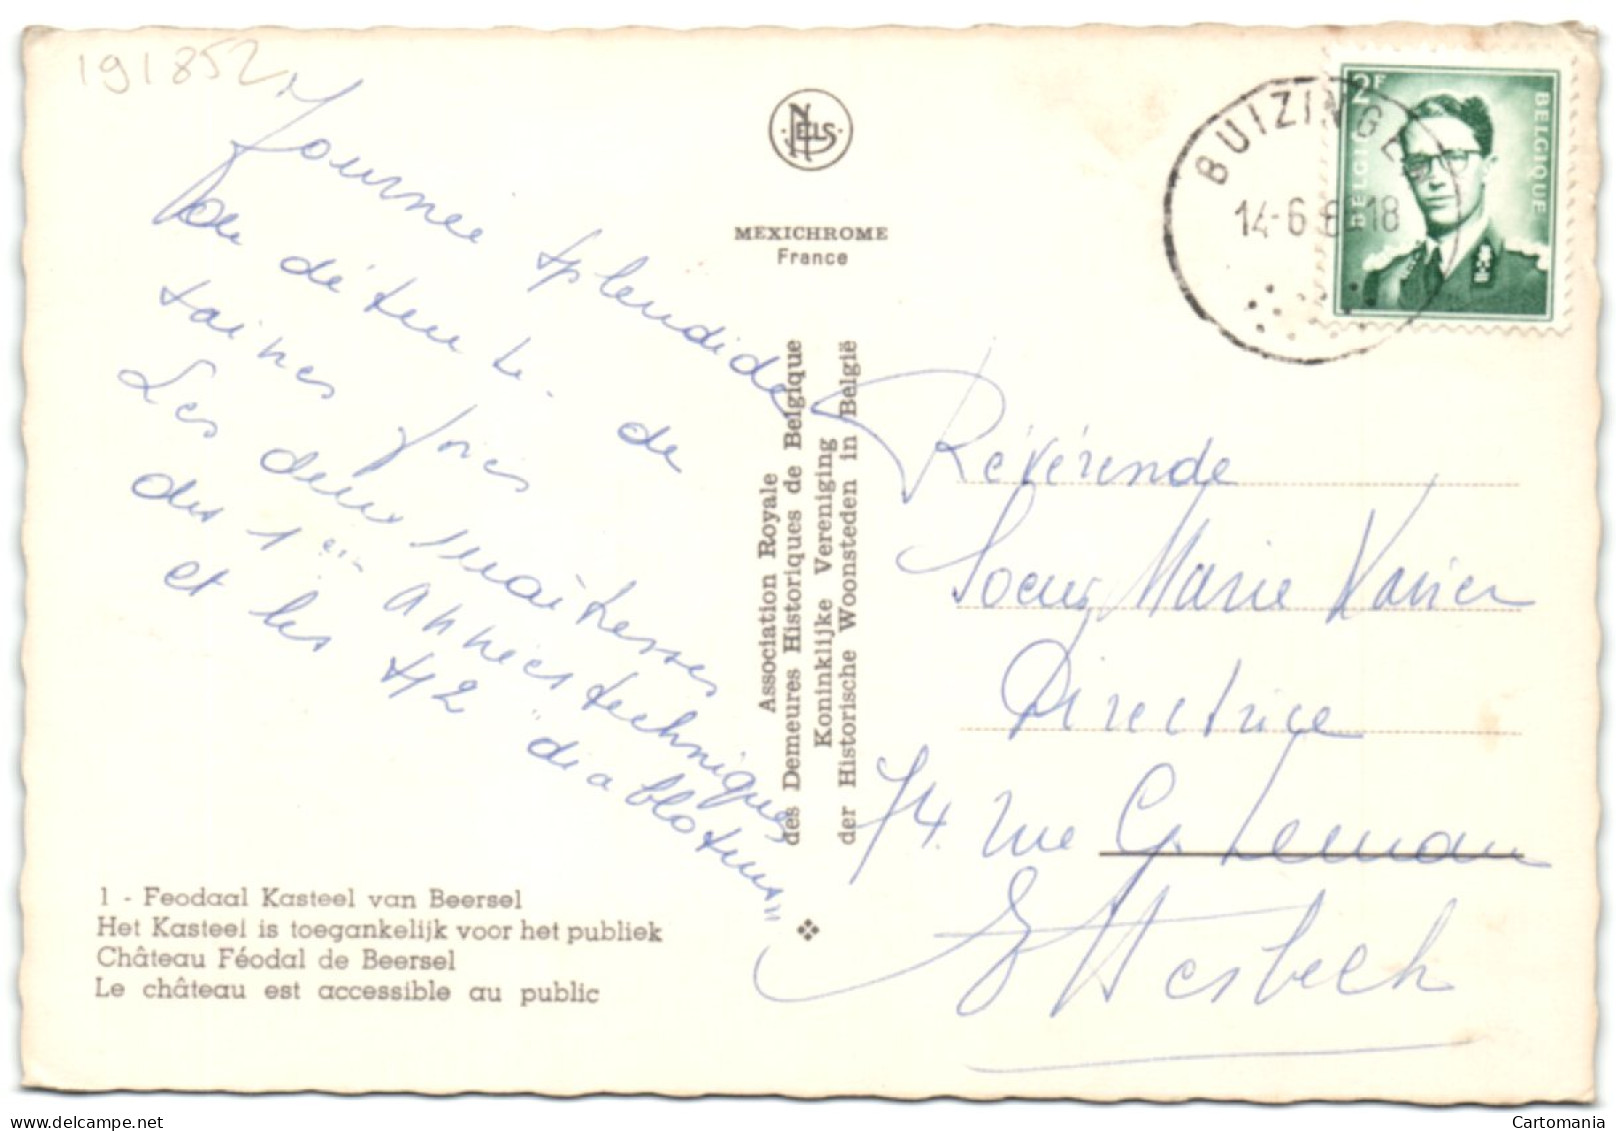 191852
Journée splendide
de détente. de
saines joies
Les deux maîtresses
des 1ères années techniques
et les 42 "diablotins"
NELS
MEXICHROME
France
Association Royale
des Demeures Historiques de Belgique
Koninklijke Vereniging
der Historische Woonsteden in België
1 - Feodaal Kasteel van Beersel
Het Kasteel is toegankelijk voor het publiek
Château Féodal de Beersel
Le château est accessible au public
BUIZINGEN
14-6
18
2F
BELGIE
BELGIQUE
Révérende
Soeur Marie Xavier
Directrice
74 rue G. Leman
Etterbeek
www.delcampe.net
Cartomania